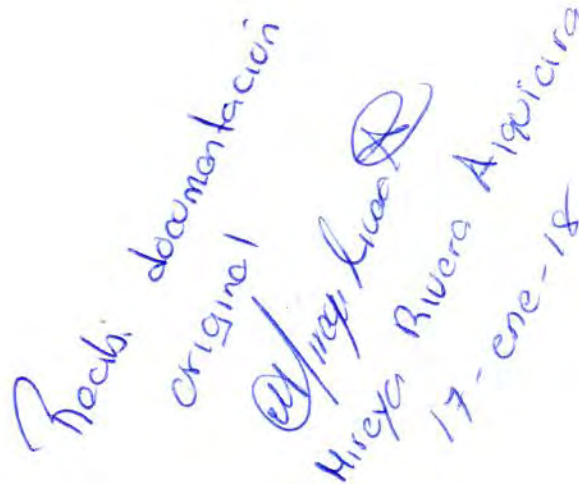 Recibi documentación
original
Mireya Rivera Aiquicira
17-ene-18